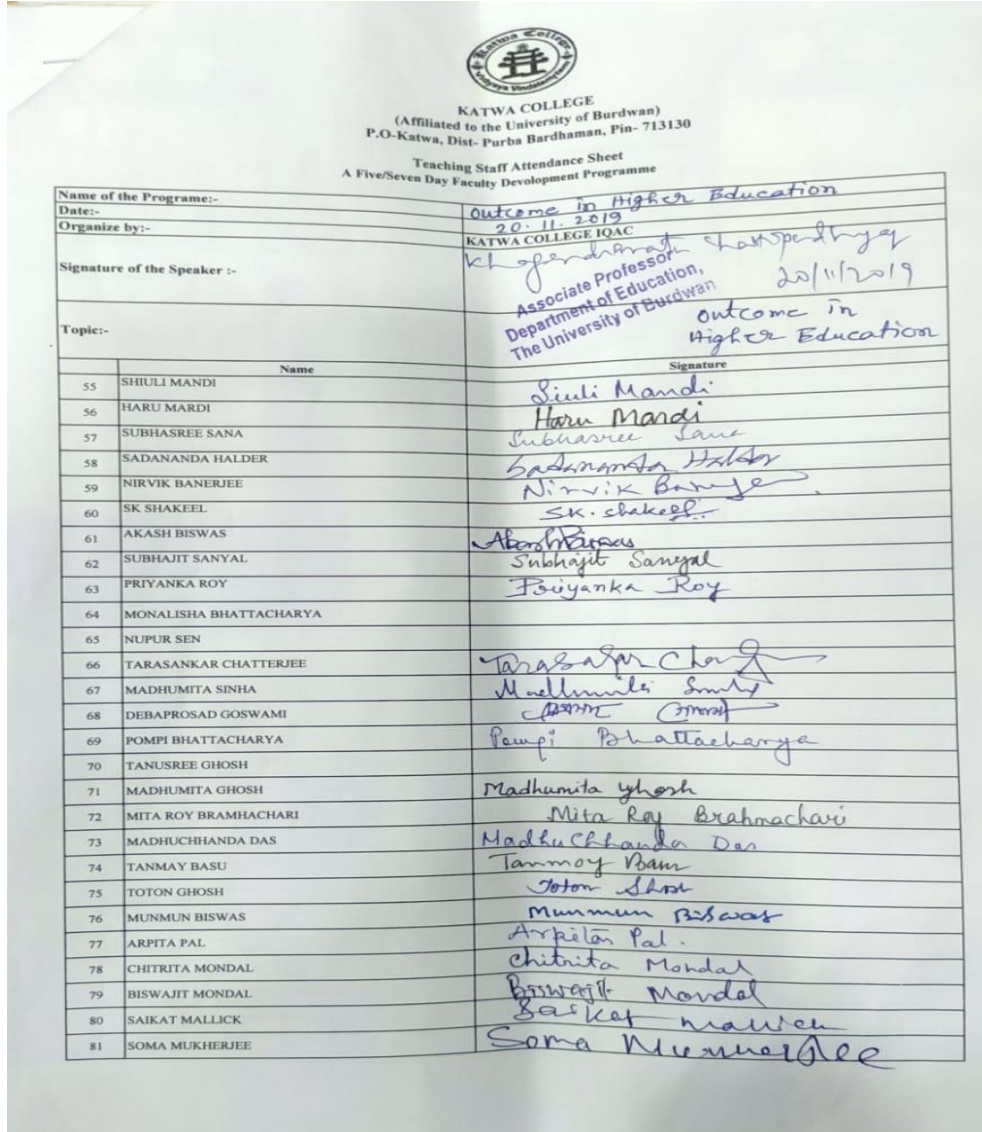 Katwa College
Vidyaya Vindatemritam
KATWA COLLEGE
(Affiliated to the University of Burdwan)
P.O-Katwa, Dist- Purba Bardhaman, Pin- 713130
Teaching Staff Attendance Sheet
A Five/Seven Day Faculty Devolopment Programme
Name of the Programe:- Outcome in Higher Education
Date:- 20.11.2019
Organize by:- KATWA COLLEGE IQAC
Signature of the Speaker :- Khagendranath Chattopadhyay
20/11/2019
Associate Professor
Department of Education,
The University of Burdwan
Topic:- Outcome in
Higher Education
Name Signature
55 SHIULI MANDI Siuli Mandi
56 HARU MARDI Haru Mardi
57 SUBHASREE SANA Subhasree Sana
58 SADANANDA HALDER Sadananda Halder
59 NIRVIK BANERJEE Nirvik Banerjee
60 SK SHAKEEL SK. Shakeel
61 AKASH BISWAS Akash Biswas
62 SUBHAJIT SANYAL Subhajit Sanyal
63 PRIYANKA ROY Priyanka Roy
64 MONALISHA BHATTACHARYA
65 NUPUR SEN
66 TARASANKAR CHATTERJEE
67 MADHUMITA SINHA Madhumita Sinha
68 DEBAPROSAD GOSWAMI
69 POMPI BHATTACHARYA Pompi Bhattacharya
70 TANUSREE GHOSH
71 MADHUMITA GHOSH Madhumita Ghosh
72 MITA ROY BRAMHACHARI Mita Roy Brahmachari
73 MADHUCHHANDA DAS Madhuchhanda Das
74 TANMAY BASU Tanmoy Basu
75 TOTON GHOSH Toton Ghosh
76 MUNMUN BISWAS Munmun Biswas
77 ARPITA PAL Arpita Pal.
78 CHITRITA MONDAL Chitrita Mondal
79 BISWAJIT MONDAL Biswajit Mondal
80 SAIKAT MALLICK Saikat Mallick
81 SOMA MUKHERJEE Soma Mukherjee